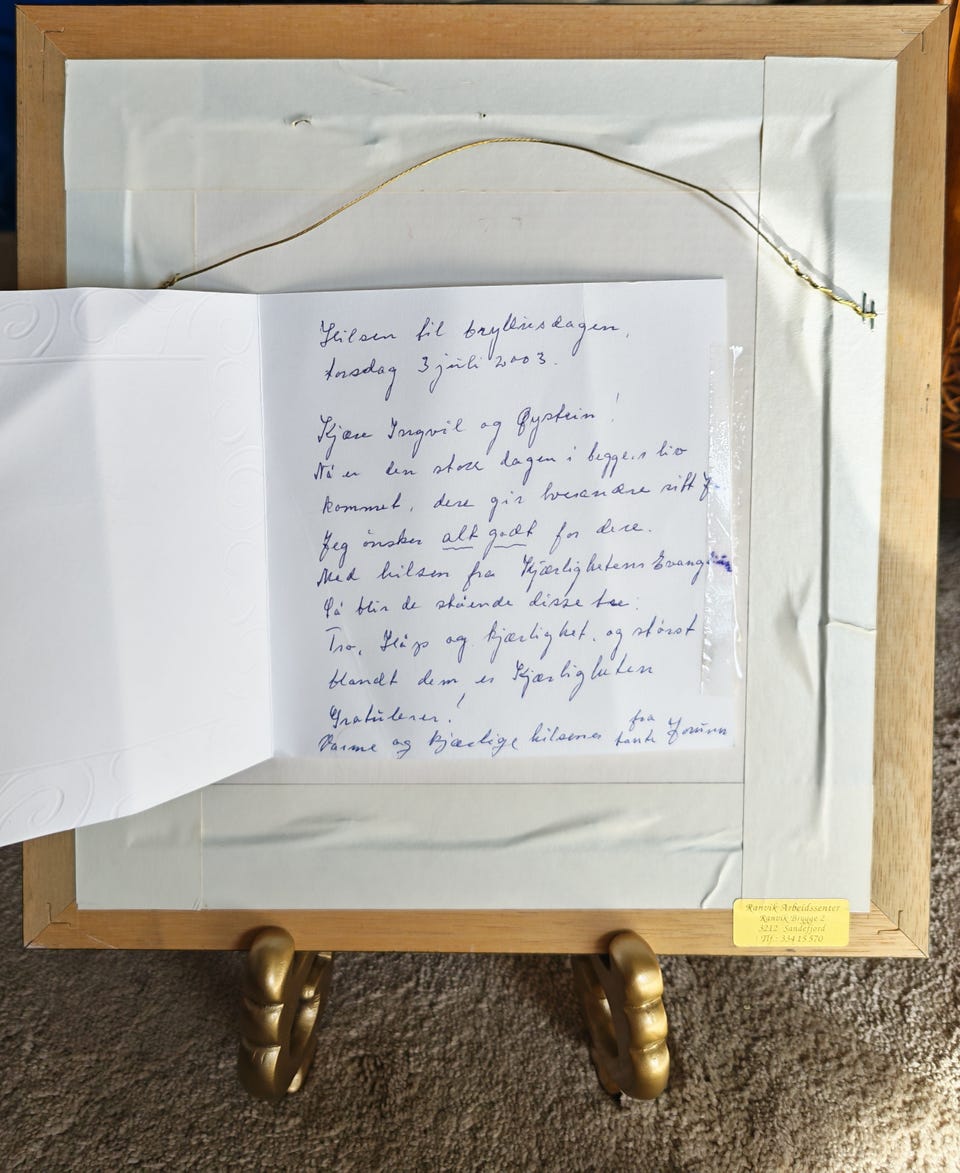 Hilsen til bryllupsdagen,
torsdag 3 juli 2003.
Kjære Ingvil og Øystein!
Nå er den store dagen i begges liv
kommet, dere gir hverandre sitt
Jeg ønsker alt godt for dere.
Med hilsen fra Kjærlighetens
Så blir de stående disse tre:
Tro, Håp og kjærlighet, og størst
blandt dem er Kjærligheten
Gratulerer!
Varme og kjærlige hilsener fra tante Jorunn
Ranvik Arbeidssenter
Ranvik Brygge 2
3212 Sandefjord
Tlf.: 334 15 570